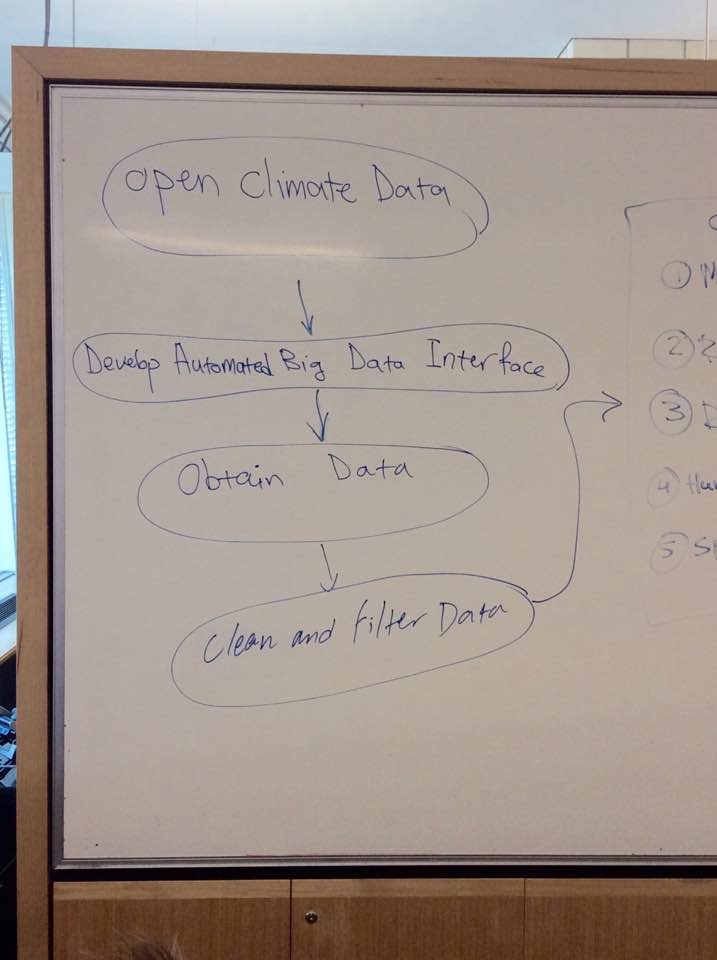 Open Climate Data
Develop Automated Big Data Interface
Obtain Data
Clean and Filter Data
1
2 ?
3
4
5